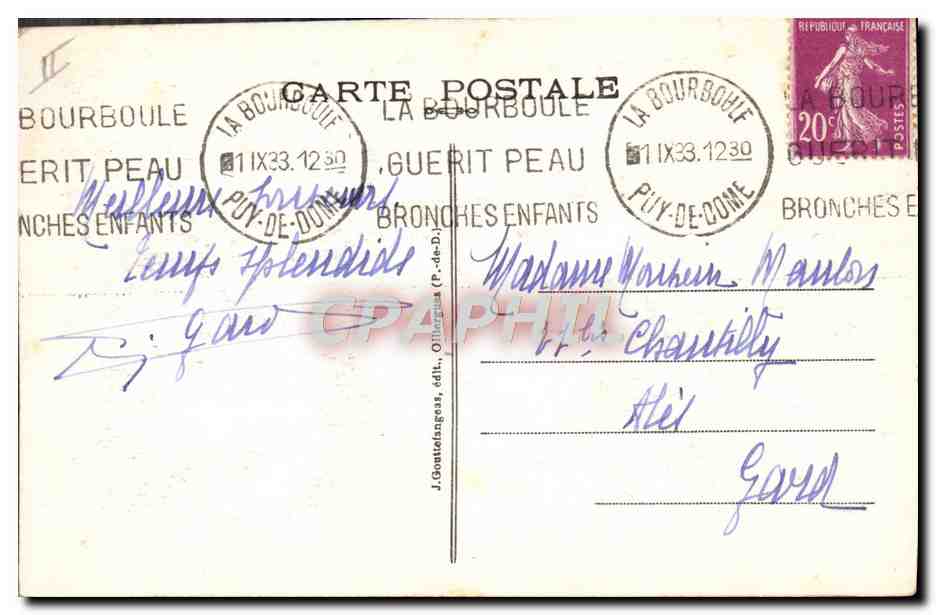 II
CARTE POSTALE
RÉPUBLIQUE FRANÇAISE
20c
POSTES
BOURBOULE
ERIT PEAU
NCHES ENFANTS
LA BOURBOULE
1 IX 33. 12 30
PUY-DE-DOME
LA BOURBOULE
GUERIT PEAU
BRONCHES ENFANTS
LA BOURBOULE
1 IX 33. 12 30
PUY-DE-DOME
LA BOURB
GUERIT
BRONCHES E
Meilleurs souvenirs
Temps splendide
Gard
Madame Monsieur
Chantilly
Alès
Gard
J. Gouttefangeas, édit., Olliergues (P.-de-D.)
CPAPHIL